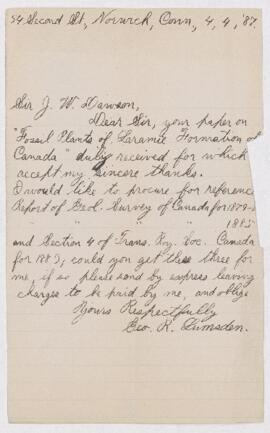 54 Second St, Norwich, Conn., 4, 4, '87.
Sir J. W. Dawson,
Dear Sir, your paper on
"Fossil Plants of Laramie Formation of
Canada" duly received for which
accept my sincere thanks.
I would like to procure for reference
Report of Geol. Survey of Canada for 1879-
" " " " 1885
and Section 4 of Trans. Roy. Soc. Canada
for 1883; could you get these three for
me, if so please send by express leaving
charges to be paid by me, and oblige
Yours Respectfully
Geo. R. Lumsden.